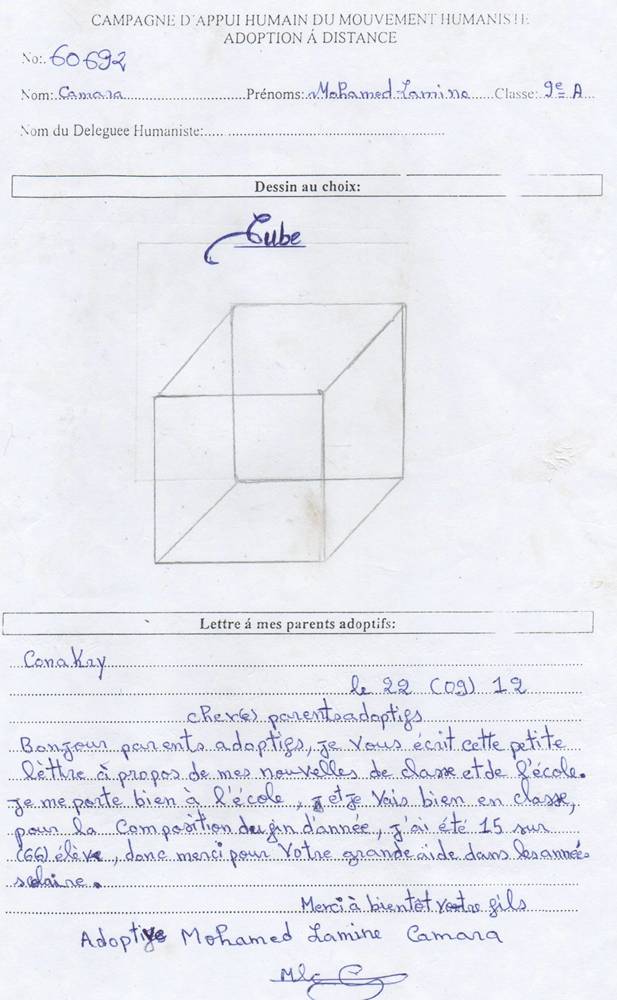 CAMPAGNE D'APPUI HUMAIN DU MOUVEMENT HUMANISTE
ADOPTION Á DISTANCE
No:. 60692
Nom: Camara Prénoms: Mohamed Lamine Classe: 9e A
Nom du Deleguee Humaniste:
Dessin au choix:
Cube
Lettre á mes parents adoptifs:
Conakry
le 22 (09) 12
cher(s) parents adoptifs
Bonjour parents adoptifs, je vous écrit cette petite
lèttre à propos de mes nouvelles de classe et de l'école.
Je me porte bien à l'école, et je vais bien en classe,
pour la Composition du fin d'année, j'ai été 15 sur
(66) élève, donc merci pour votre grande aide dans les année
scolaire.
Merci à bientôt votre fils
Adoptive Mohamed Lamine Camara
Mlc